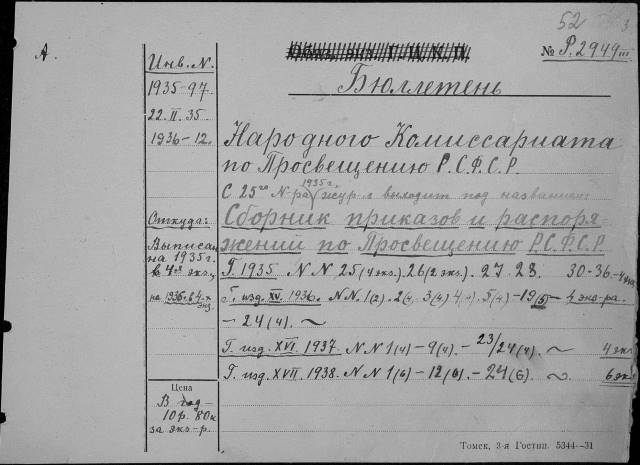 52 3
А.
№ Р.2949 III
Бюллетень
Инв. N.
1935-97.
22.II.35.
1936-12.
Народного Комиссариата
по Просвещению Р.С.Ф.С.Р.
С 25го N-ра 1935 г. жур-л выходит под названием:
Сборник приказов и распоря-
жений по Просвещению Р.С.Ф.С.Р.
Откуда:
Выписан
на 1935 г.
в 4х экз.,
на 1936 в 4-х
экз.
Г. 1935 N N 25 (4 экз.). 26 (2 экз.). 27. 28. 30-36-4 экз.
Г. изд. XV. 1936. N N. 1(2). 2(4) 3(4) 4(4). 5(4) -19(5)- 4 экз-ра.
-24(4). ~
Г. изд. XVI. 1937. N N 1(4) -9(4). -23/24(4). ~ 4 экз
Г. изд. XVII. 1938. N N 1(6) -12(6). -24(6). ~ 6 экз
Цена
В год-
10 р. 80 к
за экз-р.
Томск, 3-я Гостип. 5344—31